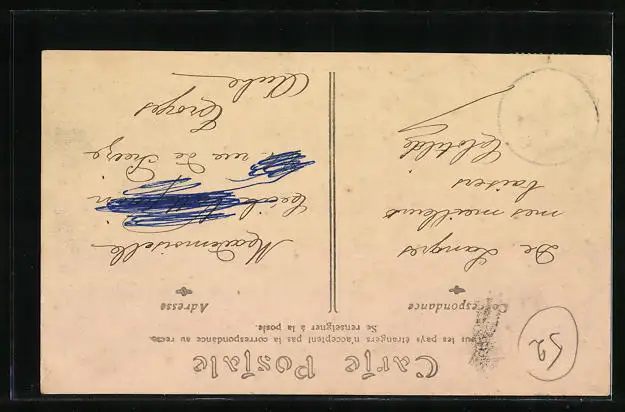 Carte Postale
Tous les pays étrangers n'acceptent pas la correspondance au recto.
Se renseigner à la poste.
Correspondance
De Langres
mes meilleurs
baisers
Clotilde
Adresse
Mademoiselle
Cécile
rue de Preize
Troyes
Aube
52